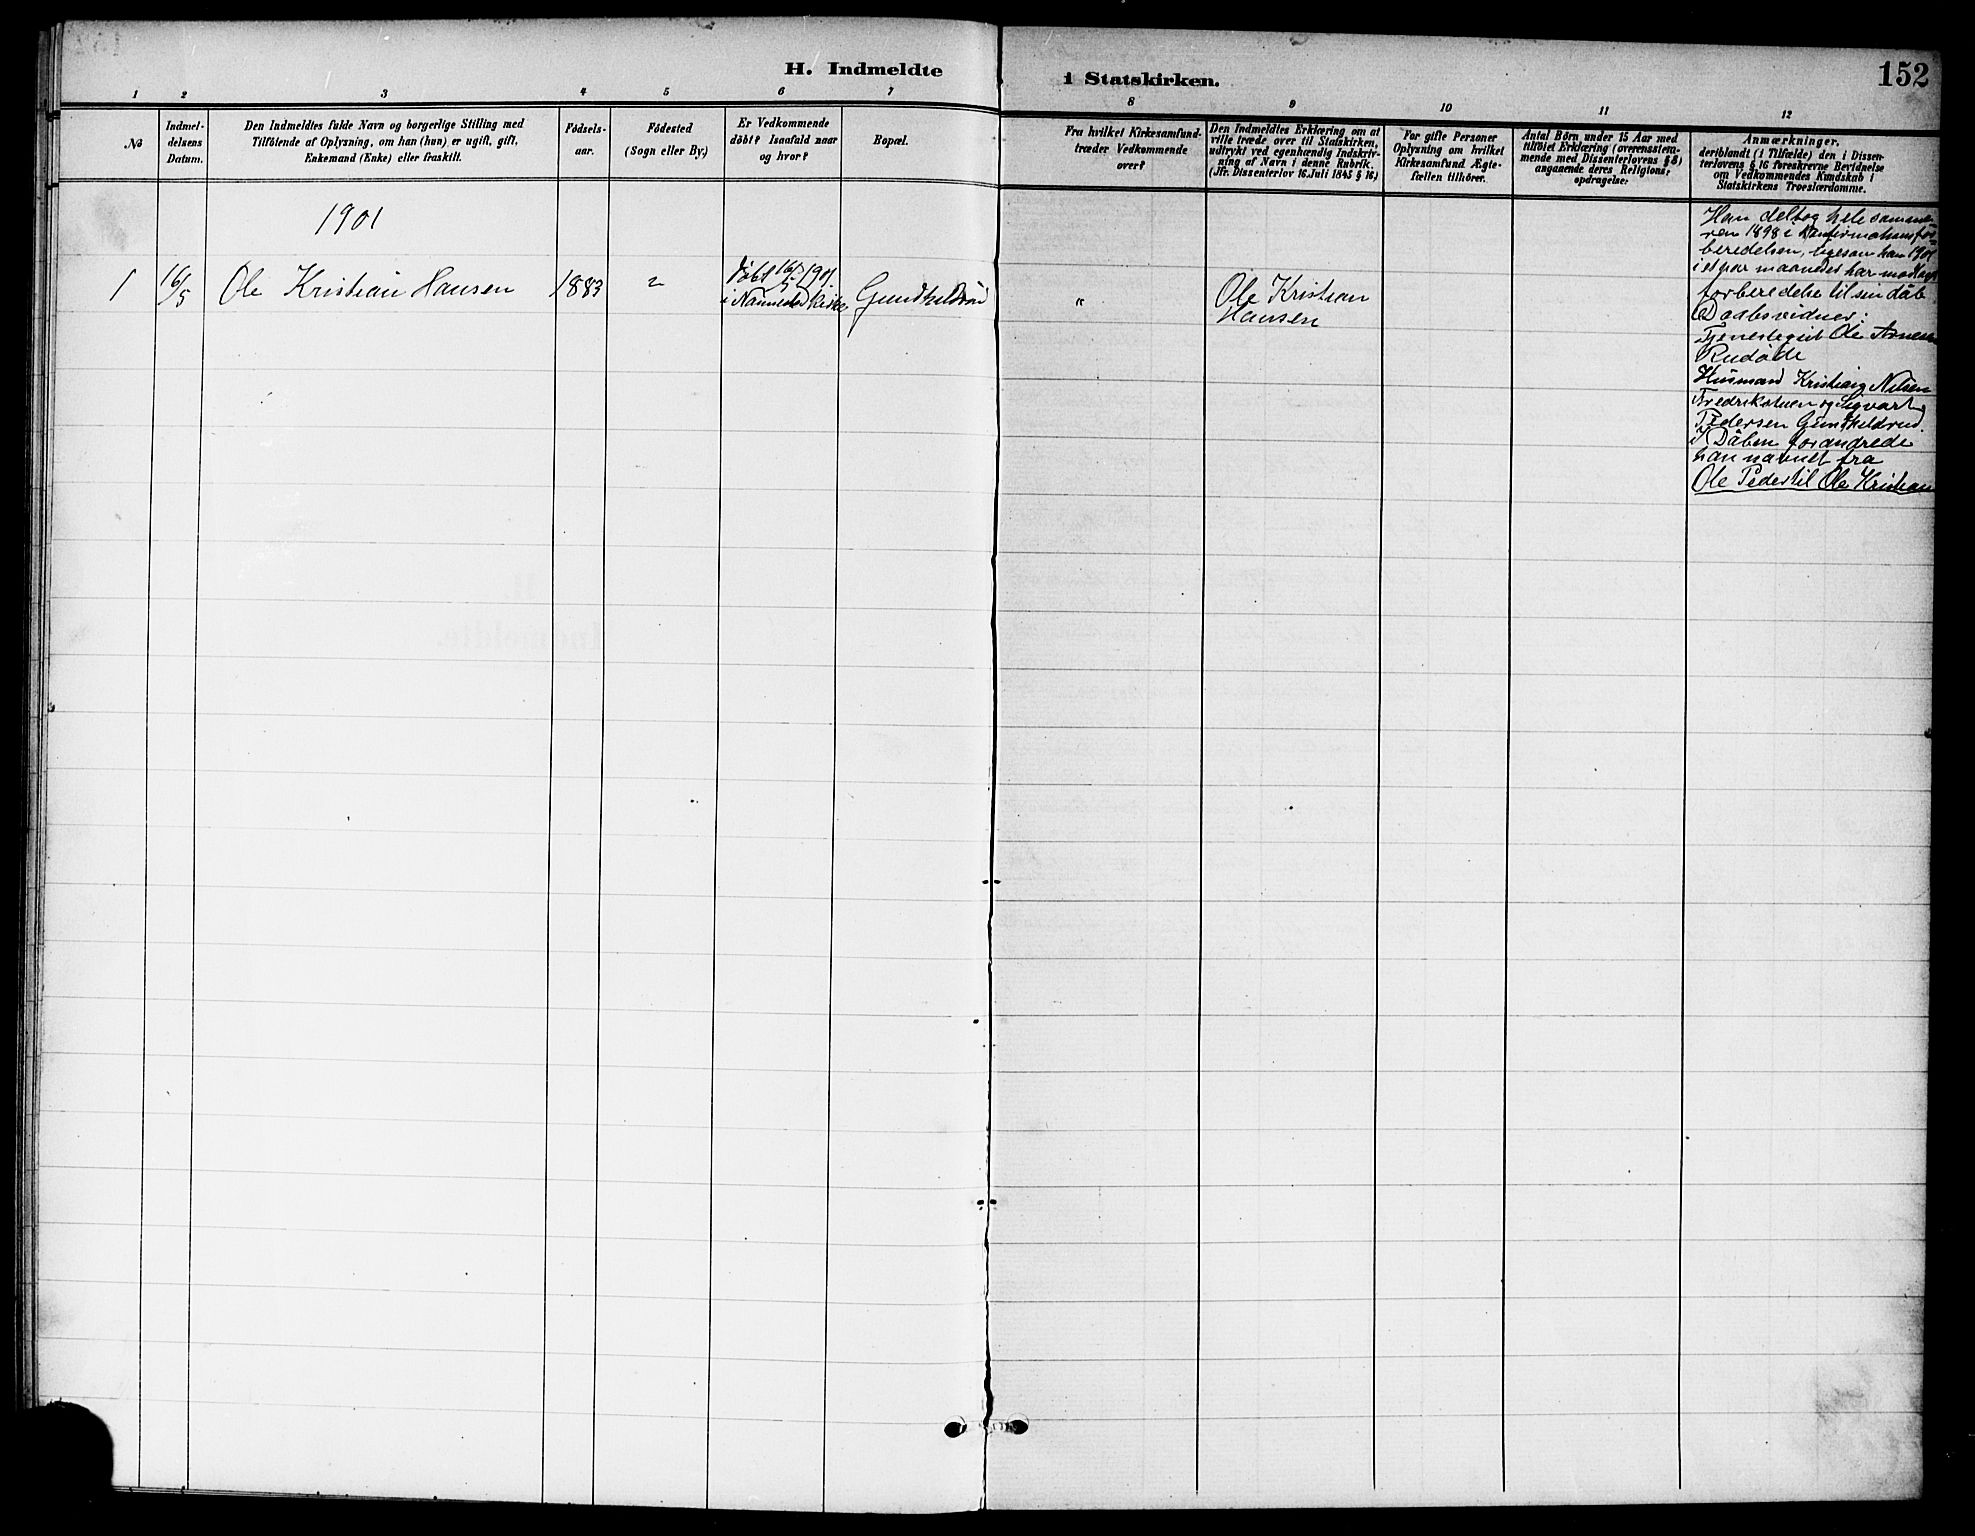 H. Indmeldte i Statskirken.
152
1 2 3 4 5 6 7 8 9 10 11 12
No
Indmel-
delsens
Datum.
Den Indmeldtes fulde Navn og borgerlige Stilling med
Tilföiende af Oplysning, om han (hun) er ugift, gift,
Enkemand (Enke) eller fraskilt.
Födsels-
aar.
Födested
(Sogn eller By.)
Er Vedkommende
döbt? Isaafald naar
og hvor?
Bopæl.
Fra hvilket Kirkesamfund-
træder Vedkommende
over?
Den Indmeldtes Erklæring om at
ville træde over til Statskirken,
udtrykt ved egenhændig Indskriv-
ning af Navn i denne Rubrik.
(Jfr. Dissenterlov 16. Juli 1845 § 16)
For gifte Personer
Oplysning om hvilket
Kirkesamfund Ægte-
fællen tilhörer.
Antal Börn under 15 Aar med
tilföiet Erklæring (overensstem-
mende med Dissenterlovens § 8)
angaaende deres Religions-
opdragelse:
Anmærkninger,
deriblandt (i Tilfælde) den i Dissen-
terlovens § 16 foreskrevne Bevidnelse
om Vedkommendes Kundskab i
Statskirkens Troeslærdomme.
1901
1
16/5
Ole Kristian Hansen
1883
"
döbt 16/5 1901
i Kirke
Gundheldrud
"
Ole Kristian
Hansen
Han deltog hele somme-
ren 1898 i Konfirmationsfor-
beredelsen, ligesom han 1901
i et par maaneder har modtaget
forberedelse til sin dåb
Daabsvidner:
Tjenestegut Ole Arnesen
Rudöde
Husmand Kristian Nilsen
Fredrikstuen og Sigvart
Pedersen Gunheldrud.
I Dåben forandrede
han navnet fra
Ole Peder til Ole Kristian